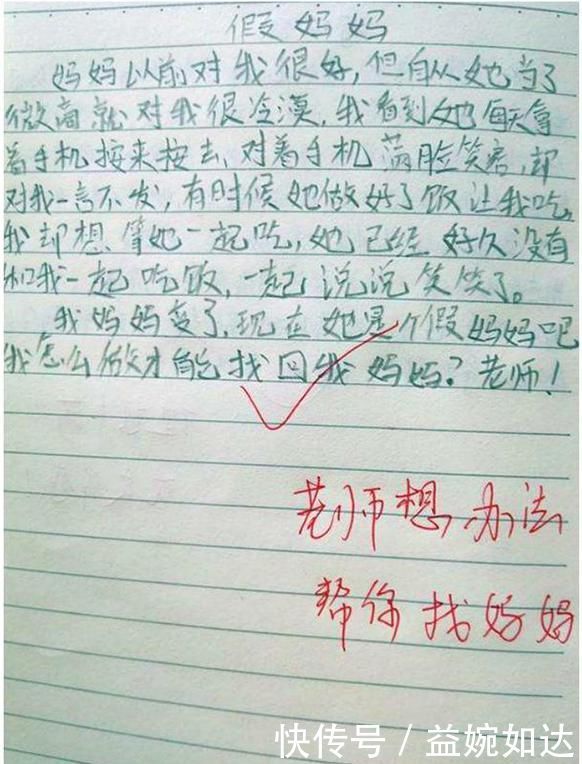 假妈妈
妈妈以前对我很好，但自从她当了
微商就对我很冷漠，我看到她每天拿
着手机按来按去，对着手机满脸笑容，却
对我一言不发，有时候她做好了饭让我吃，
我却想等她一起吃，她已经好久没有
和我一起吃饭，一起说说笑笑了。
我妈妈变了，现在她是个假妈妈吧
我怎么做才能找回我妈妈？老师！
老师想办法
帮你找妈妈
快传号/益婉如达